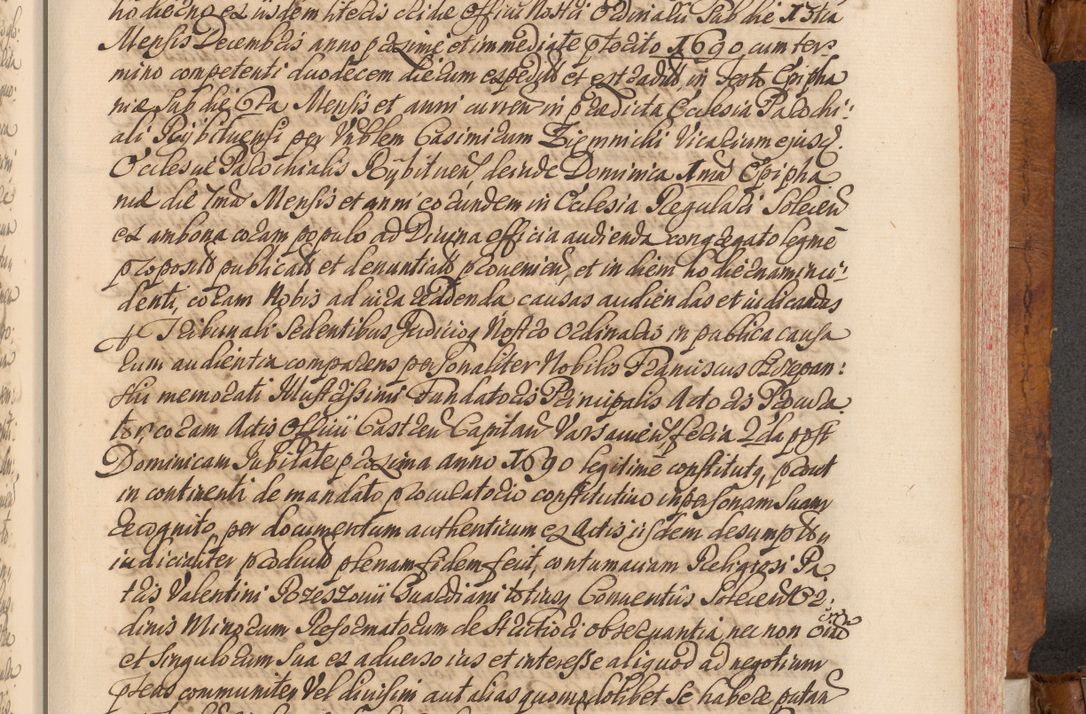 hodierno ex iisdem literis et de officii Nostri Ordinarii Sub die 13tia
Mensis Decembris anno proxime et immediate pterito 1690 cum ter
mino competenti duodecem dierum expedit et extradit, in Festo Epipha
niae Sub die 6ta Mensis et anni curren in praedicta Ecclesia Parochi:
ali Rybituensi per Vnblem Casimirum Ziemnicki Vicarium ejusd.
Ecclesiae Parochialis Rybituen deinde Dominica 1ma Epipha
niae die 7ma Mensis et anni eorundem in Ecclesia Regulari Solecen
ex ambona coram populo ad Divina officia audienda congregato legme
proposit publicat et denuntiat provenien, et in diem hodiernam inci:
denti, coram Nobis ad jura reddenda causas audiendas et iudicandas
p Tribunali Sedentibus Judicioq Nostro Ordinario in publica causa
rum audientia comparens personaliter Nobilis Franciscus Szczepan:
ski memorati Illustrissimi Fundatoris Principalis Actoris Procura
tor, coram Actis Officii Castren Capitan Varsavien feria 2da post
Dominicam Jubilate proxima anno 1690 legitime constitutq, prout
in continenti de mandato procuratorio constitutivo in personam Suam
recognito, per documentum authenticum ex Actis iisdem desumptu,
iudicialiter producto plenam fidem fecit, contumaciam Religiosi Pa
tris Valentini Rzeszovii Guardiani totiusq Conventus Solecen Or:
dinis Minorum Reformatorum de Strictiori observantia nec non om
et Singulorum Sua ex adverso ius et interesse aliquod ad negotium
pteas communiter Vel divisim aut alias quomodolibet Se habere putan